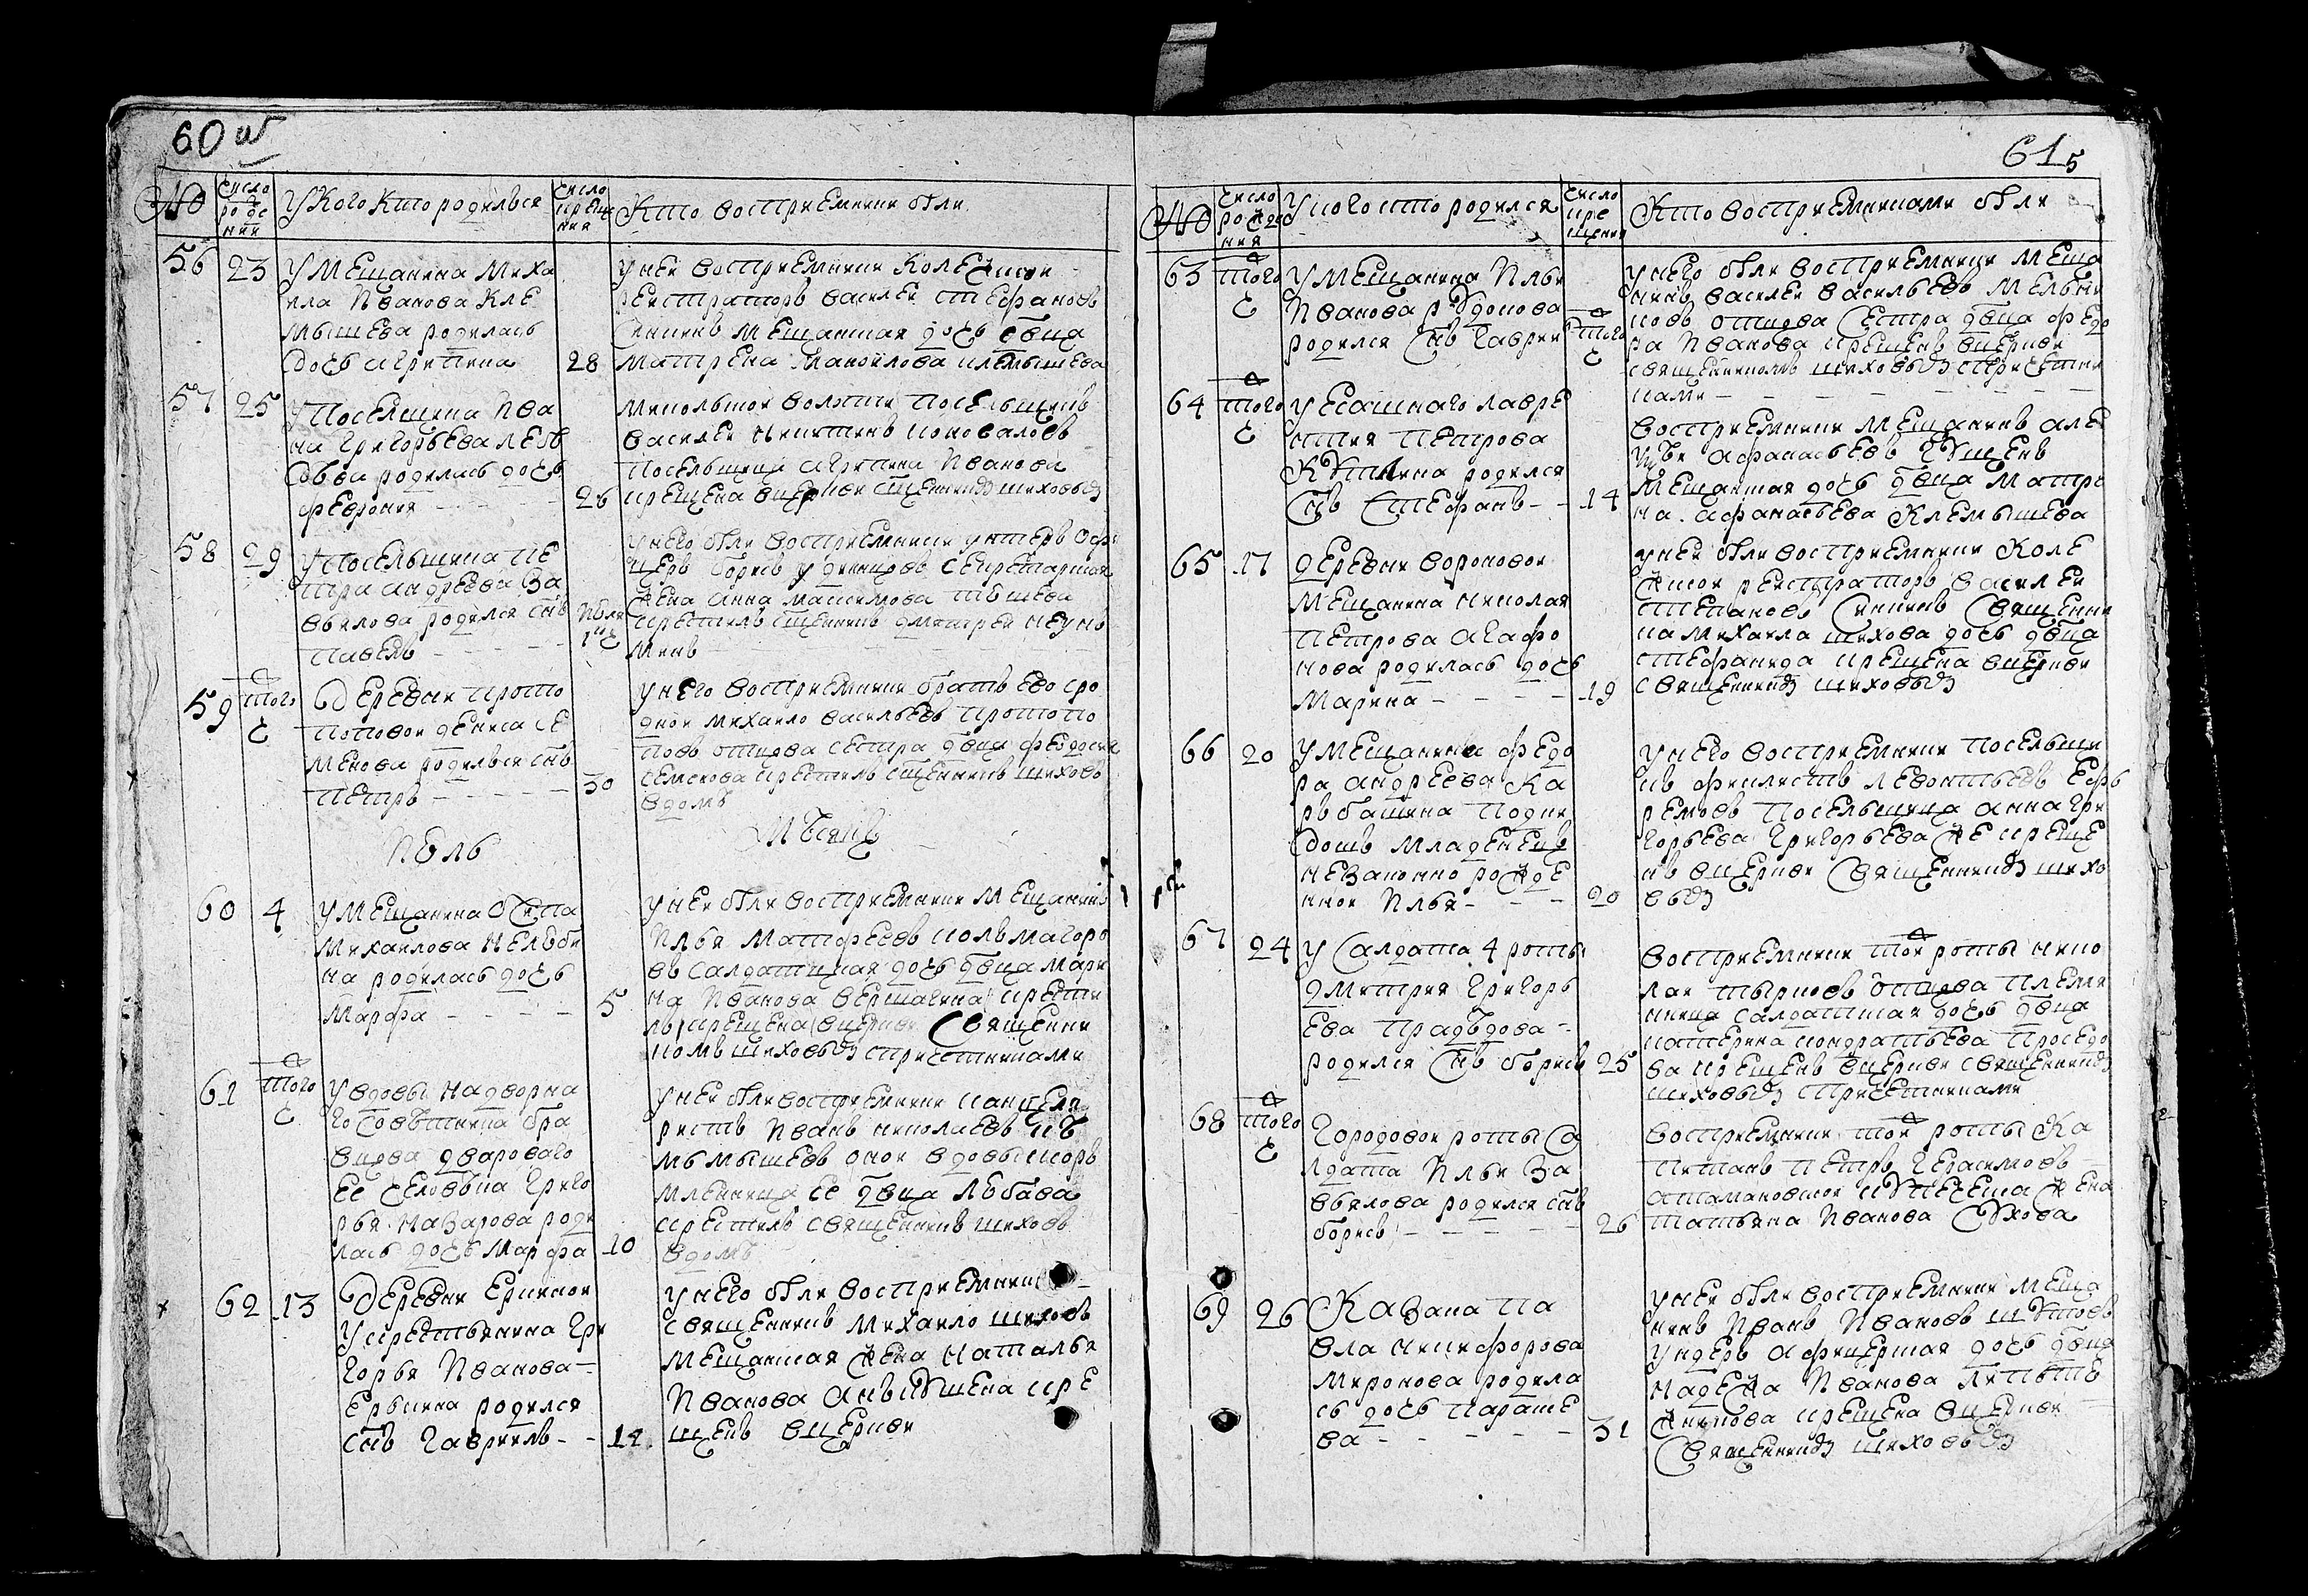 60 об
№
число рождения
У кого кто родился
число крещения
Кто восприемники были
56 23 У мещанина Миха
ила Иванова Кле
мышева родилась
дочь Агрипина 28
У ней восприемники Колежской
регистраторъ Василей Стефановъ
Синкинъ мещанская дочь двца
Матрена Манойлова Клемышева
57 25 У посельщика Ива
на Григорьева
родилась дочь
Феврония 26
волости посельщикъ
Василей Никитинъ Коноваловъ
посельщица Агрипина Иванова
крещена вцеркви сщенникомъ Шиховымъ
58 29 У посельщика Пе
тра Андреева За
вьялова родился снъ
Павелъ Июля 1го ч
У него были восприемники унтеръ офи
церъ Борисъ секретарская
жена Анна Максимова
крестилъ сщенникъ Дмитрей Неун
минъ
59 того ч Деревни Прото
поповой Дениса Се
менова родилься снъ
Петръ 30
У него восприемники братъ ево сро
дной Михайло Васильевъ Протопо
повъ отцова сестра двца Феодосия
Семенова крестилъ сщенникъ Шиховъ
вдомъ
Июль
Мѣсяцъ
60 4 У мещанина Осипа
Михайлова Нелюби
на родилась дочь
Марфа 5
У ней были восприемники мещанинъ
Илья Матфеевъ Колмагоро
въ салдатцкая дочь двца Мари
на Ивановa Вершагина крести
лъ крещена вцеркви Священни
комъ Шиховымъ спричетниками
61 того ч У вдовы надворна
го советника Бра
вцова двароваго
ее человека Григо
рья Назарова роди
лась дочь Марфа 10
У ней были восприемники канцеля
ристъ Иванъ Николаевъ
оной вдовы кор
мленница ее двца Любава
крестилъ священникъ Шиховъ
вдомъ
62 13 Деревни Еркиной
у крестьянина Гри
горья Иванова
Еркина родился
снъ Гаврилъ 14
У него были восприемники
священникъ Михайло Шиховъ
мещанская жена Наталья
Иванова кре
щенъ вцеркви
61 5
№
число рождения
У кого кто родился
число крещения
Кто восприемниками были
63 того ч У мещанина Ильи
Иванова Рудонова
родился снъ Гаврил того ч
У него были восприемники меща
нинъ Василей Васильевъ Мельни
ковъ отцова сестра двца Федо
ра Иванова крещенъ вцеркви
священникомъ Шиховымъ спричетни
ками
64 того ч У ясашнаго Лавре
нтия Петрова
родился
снъ Стефанъ 14
Восприемники мещанинъ Але
ксѣй Афанасьевъ Гущенъ
мещанская дочь двца Матре
на Афанасьева Клемышева
65 17 Деревни Вороновой
мещанина Николая
Петрова Агафо
нова родилась дочь
Марина 19
У ней были восприемники Коле
жской регистраторъ Василей
Степановъ Синкинъ Священни
ка Михаила Шихова дочь двца
Стефанида крещена вцеркви
священникомъ Шиховымъ
66 20 У мещанина Федо
ра Андреева Ка
рбашина подки
дошъ младенецъ
незаконно рожде
нной Илья 20
У него восприемники посельщи
къ Филистъ Левонтьевъ Ефь
ремовъ посельщица Анна Гри
горьева Григорьева же креще
нъ вцеркви Священникомъ Шихо
вымъ
67 24 У салдата 4 роты
Дмитрия Григорь
ева Прадѣдова
родился снъ Борисъ 25
Восприемники той роты Нико
лай Тырковъ отцова племя
нница салдатская дочь двца
Катерина Кондратьева Проседо
ва крещенъ вцеркви священникомъ
Шиховымъ спричетниками
68 того ч Городовой роты са
лдата Ильи За
вьялова родился снъ
Борисъ 26
Восприемники той роты Ка
питанъ Петръ Герасимовъ
Атамановской купечеша жена
Татьяна Иванова Сухова
69 26 Казака Па
вла Никифорова
Миронова родила
сь дочь Параске
ва 31
У ней были восприемники меща
нинъ Иванъ Ивановъ Шутовъ
ундеръ афицерская дочь двца
Надежа Иванова
крещена вцеркви
Священникомъ Шиховымъ